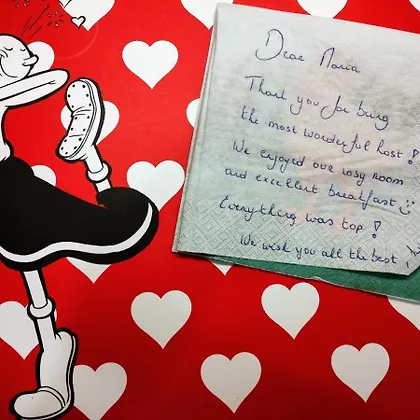 Dear Maria
Thank you for being
the most wonderful host!
We enjoyed our cosy room
and excellent breakfast :)
Everything was top!
We wish you all the best